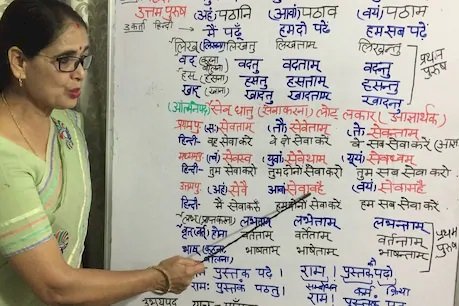 उत्तम पुरुष (अहं) पठानि (आवां) पठाव (वयं) पठाम
उकर्ता हिन्दी - मैं पढूँ हम दो पढें हम सब पढ़ें
लिख् (लिखना) लिखतु लिखताम् लिखन्तु
वद् (कहना बोलना) वदतु वदताम् वदन्तु
हस् (हँसना) हसतु हसताम् हसन्तु
खाद् (खाना) खादतु खादताम् खादन्तु
प्रथम पुरुष
(आत्मनेपद) सेव् धातु (सेवा करना) लोट् लकार (आज्ञार्थक)
प्रथमपु (सः) सेवताम् (तौ) सेवेताम् (ते) सेवन्ताम्
हिन्दी- वह सेवा करे वे दो सेवा करें वे सब सेवा करें
मध्यमपु (त्वं) सेवस्व (युवां) सेवेथाम् (यूयं) सेवध्वम्
हिन्दी- तुम सेवा करो तुम दोनों सेवा करो तुम सब सेवा करो
उत्तमपु (अहं) सेवै (आवां) सेवावहै (वयं) सेवामहै
हिन्दी- मैं सेवा करूँ हम दोनों सेवा करें हम सब सेवा करें
लभ् (प्राप्त करना) लभताम् लभेताम् लभन्ताम्
वृत् (होना) वर्तताम् वर्तेताम् वर्तन्ताम्
भाष् (कहना बोलना) भाषताम् भाषेताम् भाषन्ताम्
प्रथम पुरुष
पुस्तक पढ़े। राम! पुस्तक पढो
रामः पुस्तकं पठतु। सम्बोधन कर्म क्रिया
राम! पुस्तकं